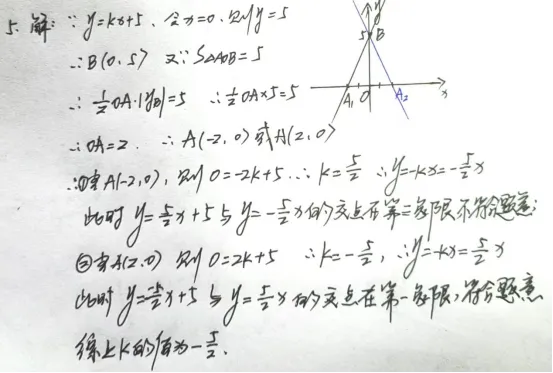 5. 解: ∵ y=kx+5, 令x=0, 则y=5
∴B(0,5) 又∵ S△AOB=5
∴ 1/2 OA·|yB|=5 ∴ 1/2 OA×5=5
∴OA=2. ∴ A(-2,0)或A(2,0)
∴①当A(-2,0), 则 0=-2k+5 ∴ k=5/2 ∴y=-kx=-5/2x
此时 y=5/2x+5与y=-5/2x的交点在第二象限不符合题意;
②当A(2,0) 则 0=2k+5 ∴k=-5/2, ∴y=-kx=5/2x
此时 y=-5/2x+5与y=5/2x的交点在第一象限,符合题意
综上k的值为-5/2.
y
5
B
A1
O
A2
x